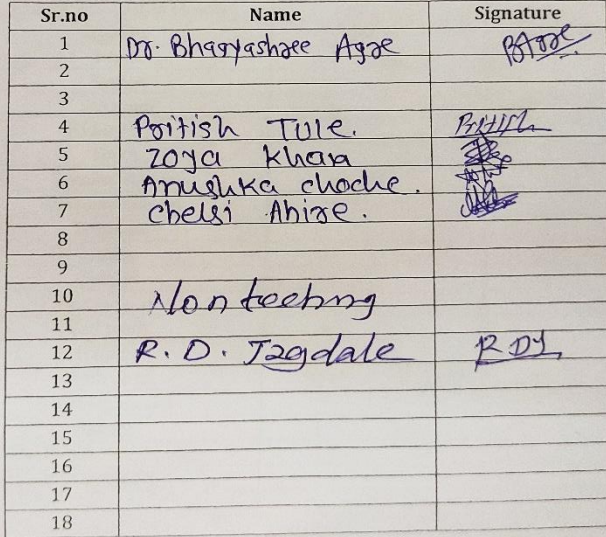 Sr.no Name Signature
1 Dr. Bhagyashree Agre BAgre
2
3
4 Pritish Tule. Pritish
5 Zoya Khan
6 Anushka choche.
7 Chelsi Ahire.
8
9
10 Non teching
11
12 R. D. Jagdale RDJ
13
14
15
16
17
18